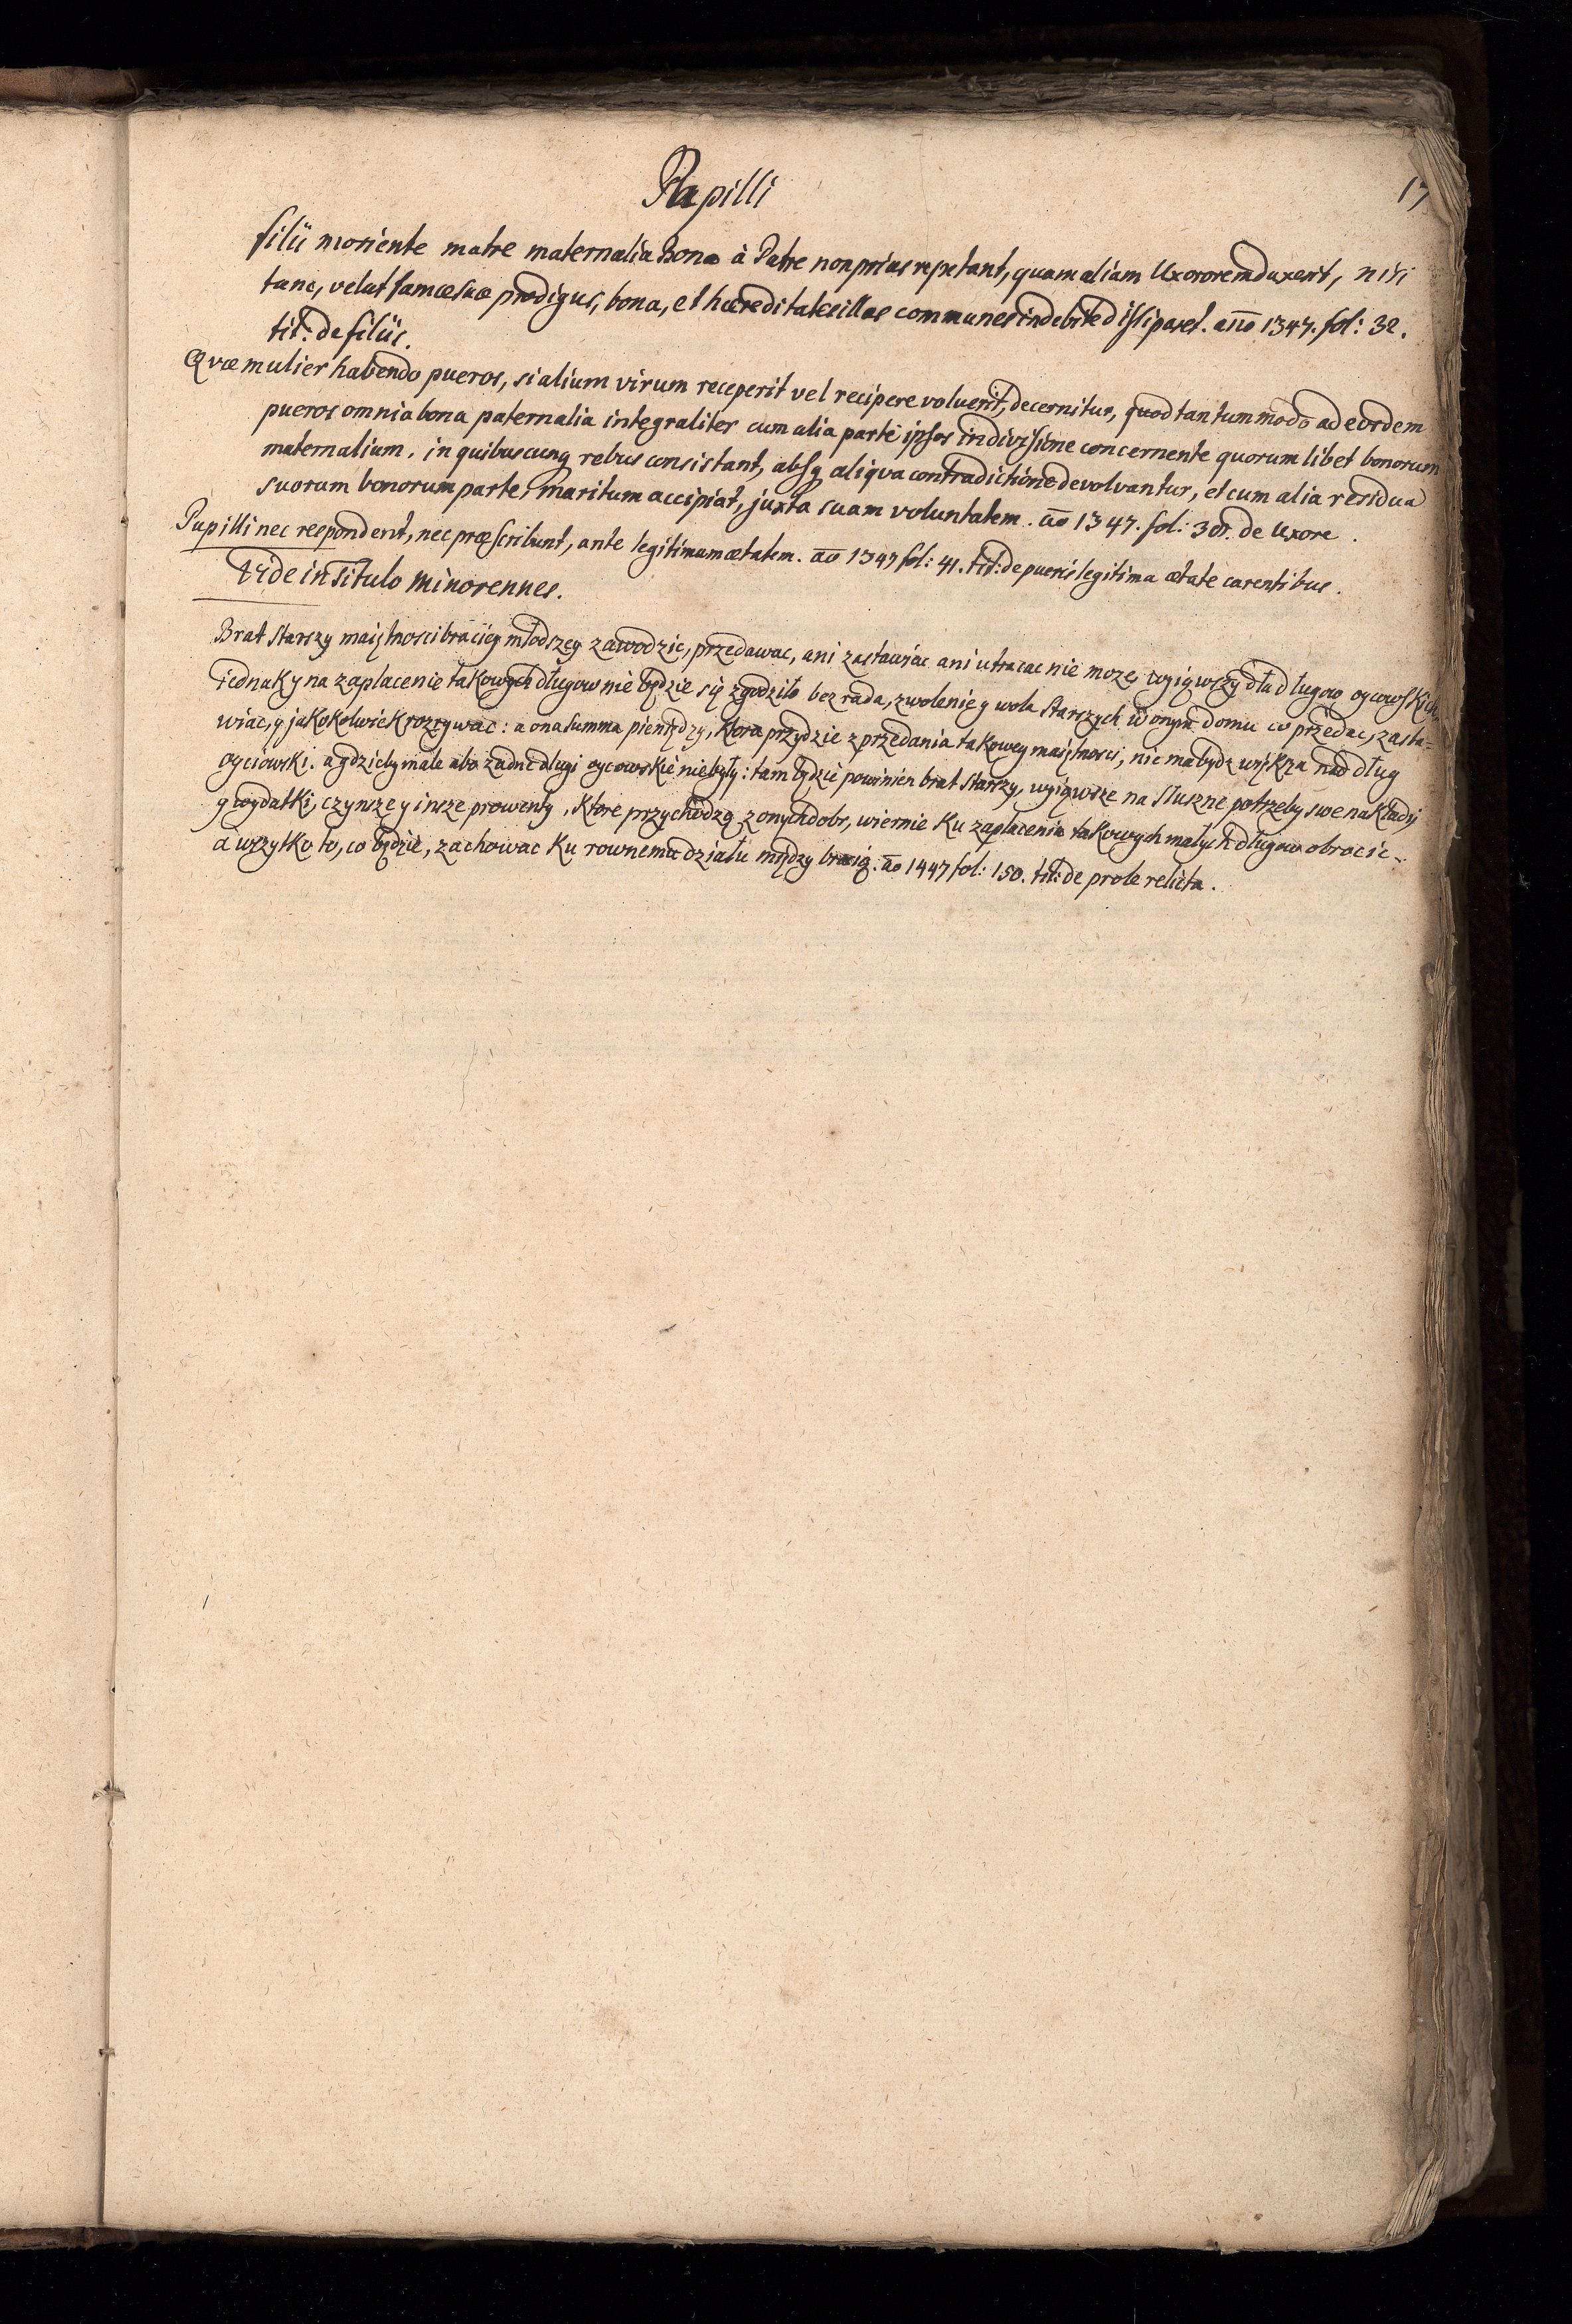 Pupilli
17
filii moriente matre maternalia bona à Patre non prius repetant, quam aliam Uxororem duxerit, nisi
tunc, velut famæ suæ prodigus, bona, et hæreditates illas communes indebite dissiparet. año 1347. fol: 32.
tit: de filiis.
Quæ mulier habendo pueros, si alium virum receperit vel recipere voluerit, decernitur, quod tantummodo ad eosdem
pueros omnia bona paternalia integraliter cum alia parte ipsos in divisione concernente quorum libet bonorum
maternalium, in quibuscunq rebus consistant, absq aliqva contradictione devolvantur, et cum alia residua
suorum bonorum parte, maritum accipiat, juxta suam voluntatem. āo 1347. fol: 30. de Uxore.
Pupilli nec respondent, nec præscribunt, ante legitimam ætatem. āo 1347 fol: 41. tit: de pueris legitima ætate carentibus.
Vide in Titulo minorennes.
Brat starszy maiętnosci braciey młodszey zawodzic, przedawac, ani zastawiac ani utracac nie moze, wyiąwszy dla długow oycowskich
iednak y na zaplacenie takowych długow nie będzie się zgodziło bez rada, zwolenie y wola starszych w onym domu co przedac, zasta=
wiac, y jakokolwiek rozrywac: a ona summa pieniędzy, ktora przydzie z przedania takowey maiętnosci, nie ma bydz większa nad dług
oyciowski. a gdzieby male albo zadne długi oycowskie niebyły: tam będzie powinien brat starszy, wyiąwsze na sluszne potrzeby swe nakłady
y wydatki, czynsze y insze prowenty, ktore przychodzą z onych dobr, wiernie ku zaplaceniu takowych małych długow obrocic
a wszytko to, co będzie, zachowac ku rownemu działu między bracią. āo 1447 fol: 150. tit: de prole relicta.